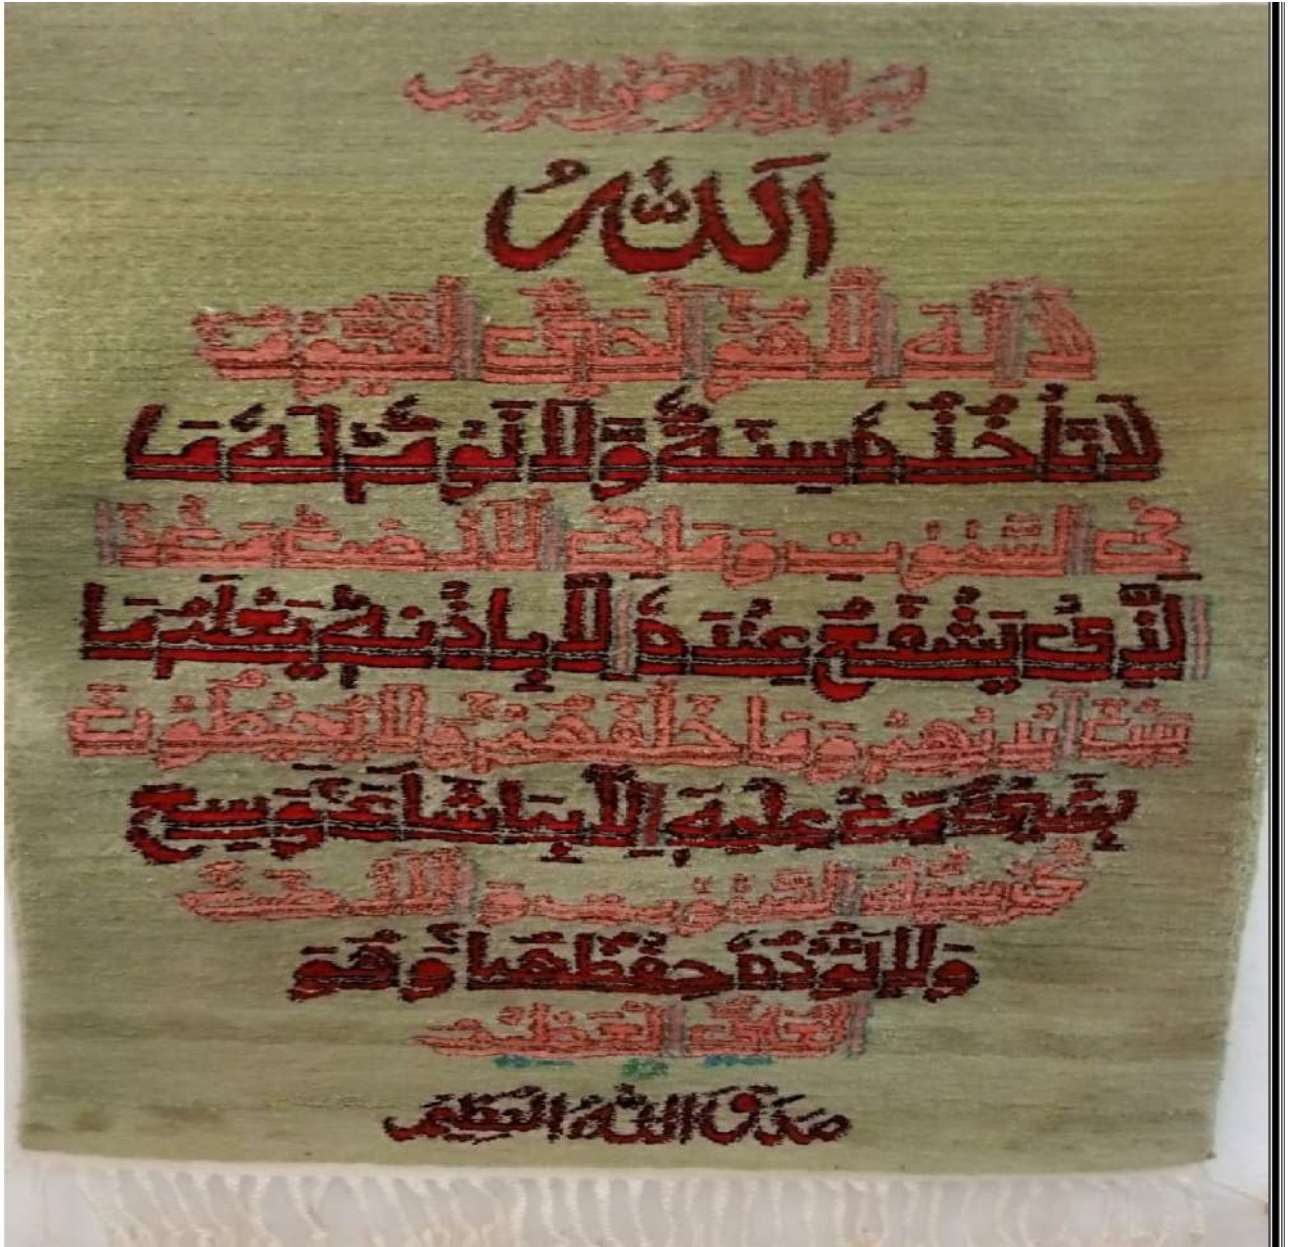 بسم الله الرحمن الرحيم
اَللّٰهُ
لَآ اِلٰهَ اِلَّا هُوَ الْحَيُّ الْقَيُّوْمُ
لَا تَاْخُذُهٗ سِنَةٌ وَّلَا نَوْمٌ لَهٗ مَا
فِي السَّمٰوٰتِ وَمَا فِي الْاَرْضِ مَنْ ذَا
الَّذِيْ يَشْفَعُ عِنْدَهٗٓ اِلَّا بِاِذْنِهٖ يَعْلَمُ مَا
بَيْنَ اَيْدِيْهِمْ وَمَا خَلْفَهُمْ وَلَا يُحِيْطُوْنَ
بِشَيْءٍ مِّنْ عِلْمِهٖٓ اِلَّا بِمَا شَآءَ وَسِعَ
كُرْسِيُّهُ السَّمٰوٰتِ وَالْاَرْضَ
وَلَا يَـُٔوْدُهٗ حِفْظُهُمَا وَهُوَ
الْعَلِيُّ الْعَظِيْمُ
صدق الله العظيم